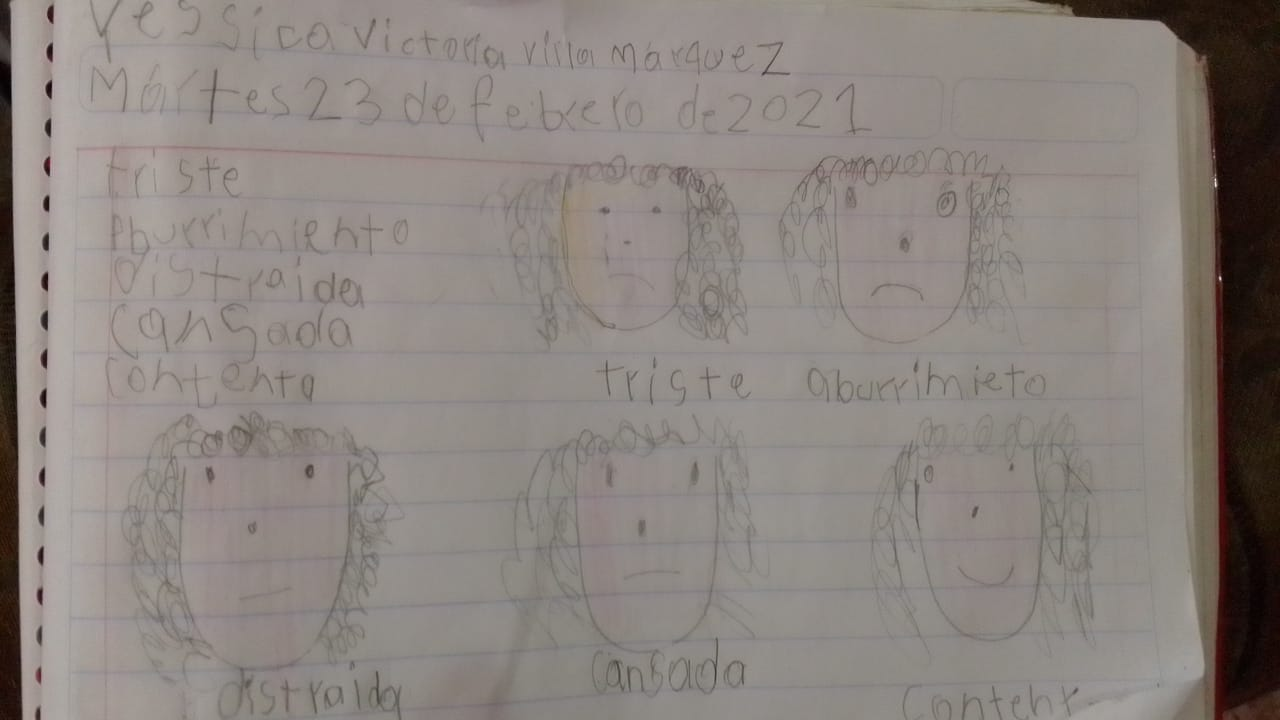 Yessica victoria villa márquez
Mártes 23 de febrero de 2021
triste
Aburrimiento
distraida
cansada
contenta
triste
aburrimieto
distraida
cansada
content